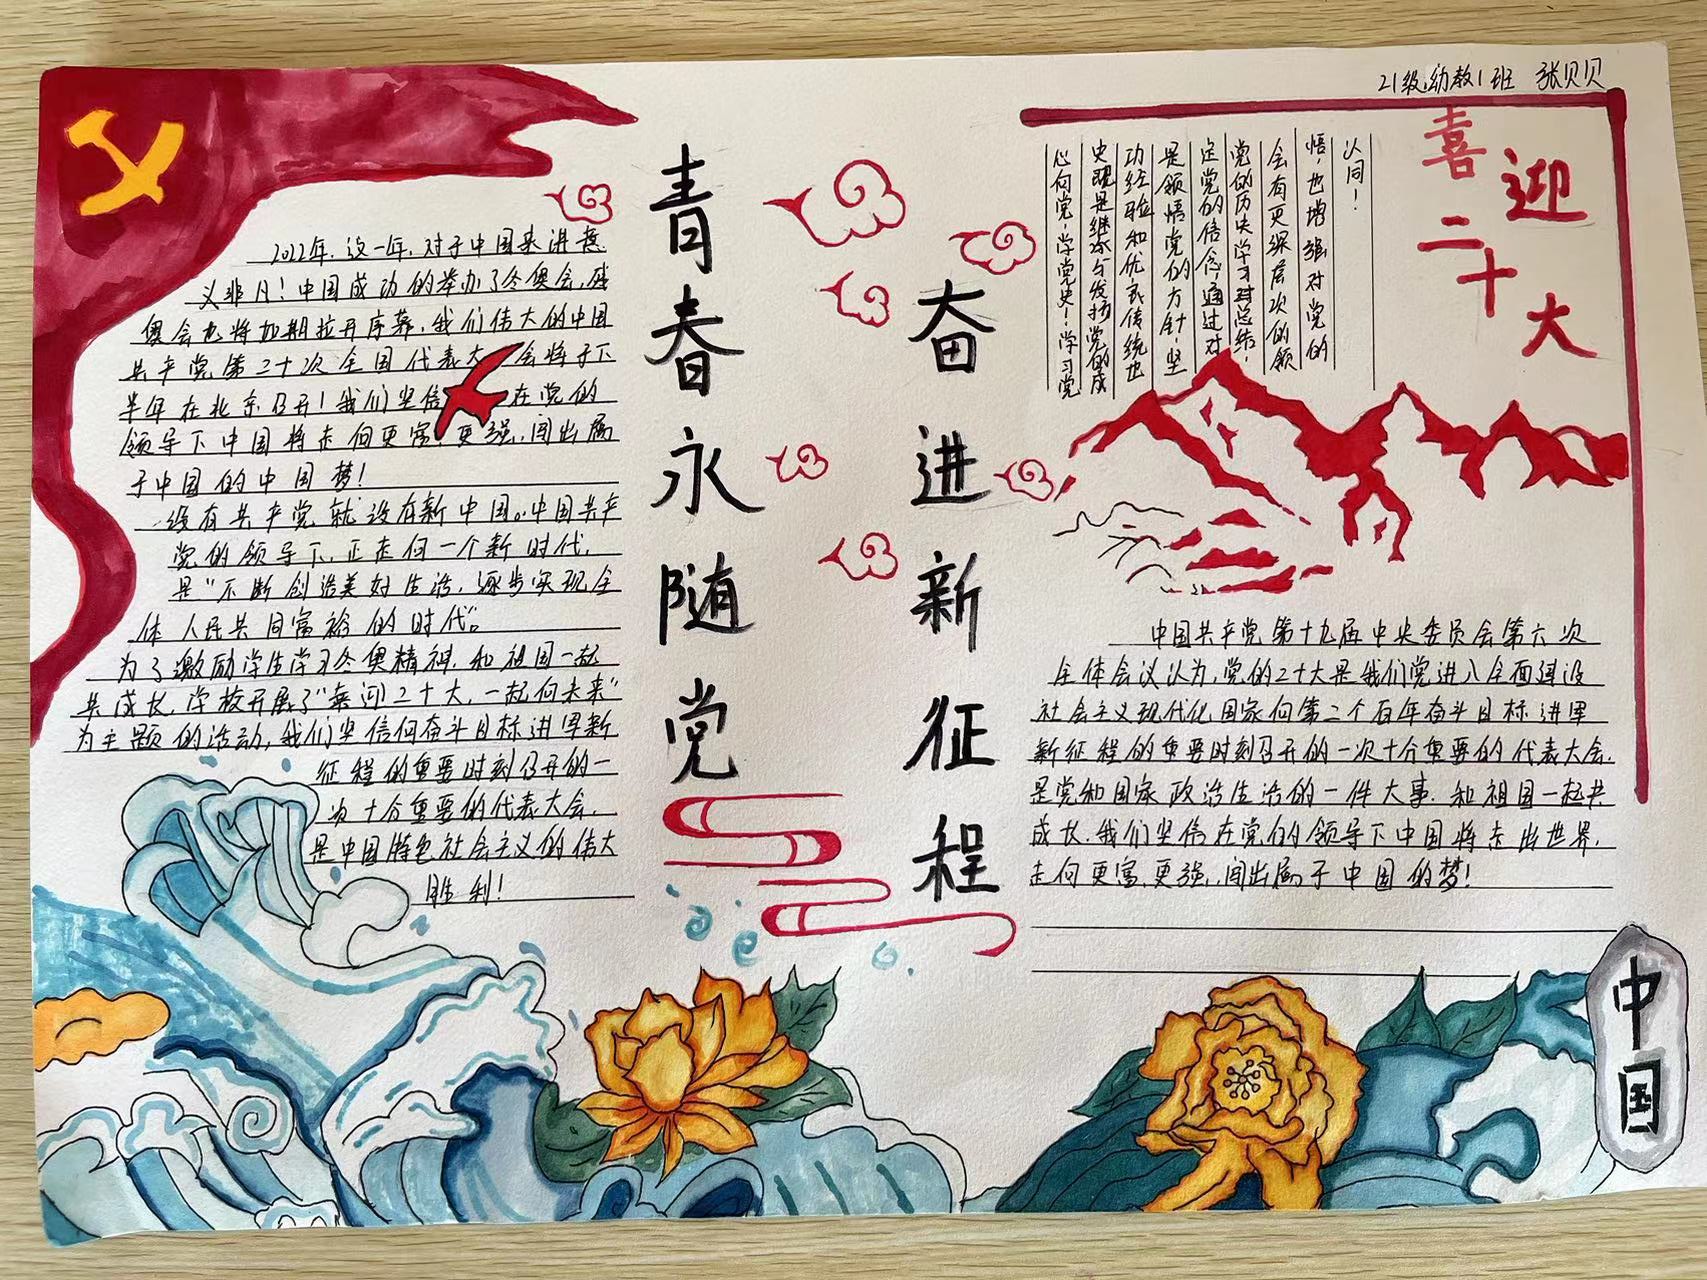 21级幼教1班 张贝贝
喜迎二十大
青春永随党
奋进新征程
2022年,这一年,对于中国来讲意
义非凡!中国成功的举办了冬奥会,残
奥会也将如期拉开序幕,我们伟大的中国
共产党第二十次全国代表大会将于下
半年在北京召开!我们坚信 在党的
领导下中国将走向更富,更强,闯出属
于中国的中国梦!
没有共产党就没有新中国。中国共产
党的领导下,正走向一个新时代,
是“不断创造美好生活,逐步实现全
体人民共同富裕的时代”。
为了激励学生学习冬奥精神,和祖国一起
共成长,学校开展了“喜迎二十大,一起向未来”
为主题的活动,我们坚信向奋斗目标进军新
征程的重要时刻召开的一
次十分重要的代表大会,
是中国特色社会主义的伟大
胜利!
心向党·学党史!学习党
史既是继承与发扬党的成
功经验和优良传统也
是领悟党的方针,坚
定党的信念,通过对
党的历史学习对总结,
会有更深层次的领
悟,也增强对党的
认同!
中国共产党第十九届中央委员会第六次
全体会议认为,党的二十大是我们党进入全面建设
社会主义现代化国家向第二个百年奋斗目标进军
新征程的重要时刻召开的一次十分重要的代表大会,
是党和国家政治生活的一件大事,和祖国一起共
成长,我们坚信在党的领导下中国将走出世界,
走向更富,更强,闯出属于中国的梦!
中国